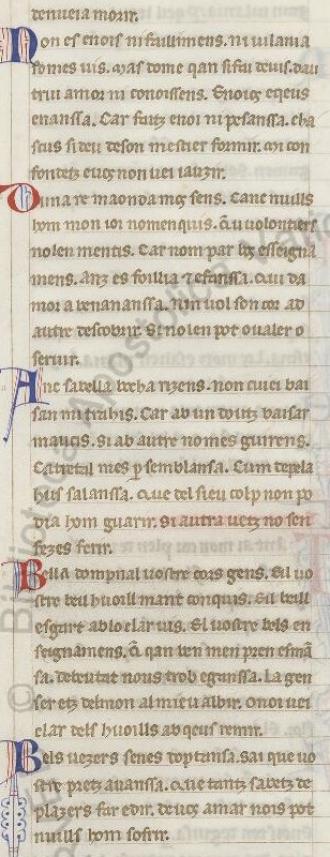 denueia morir.
Non es enois ni faillimens. ni uilania
so mes uis. mas dome qan sifai deuis. dau
trui amor ni conoissens. Enoios eqeus
enanssa. Car faitz enoi ni pesanssa. cha
scus si deu deson mestier formir. mi con
fondetz euos non uei iauzir.
Duna re maonda mos sens. Canc nuills
hom mon ioi nomenquis. q̃u uolontiers
nolen mentis. Car nom par bos esseigna
mens. Anz es foillia ⁊ efanssa. Qui da
mor a benananssa. Nin uol son cor ad
autre descobrir. Si no len pot o ualer o
seruir.
Anc sa bella bocha rizens. non cuiei bai
san mi trahis. Car ab un doutz baisar
maucis. Si ab autre no mes guirens.
Catretal mes p semblansa. Cum de pela
hus sa lanssa. Que del sieu colp non po
dia hom guarir. Si autra uetz no sen
fezes ferir.
Bella dompnal uostre cors gens. Eil uo
stre beil huoill mant conquis. Eil beill
esgart ablo clar uis. El uostre bels en
seignamens. q̃ qan ben men pren esmã
sa. debeutat nous trob eganssa. La gen
ser etz del mon al mieu albir. O noi uei
clar dels huoills ab qeus remir.
Bels uezers senes doptansa. Sai que uo
stre pretz auanssa. Que tantz sabetz de
plazers far e dir. de uos amar nois pot
nuills hom sofrir.